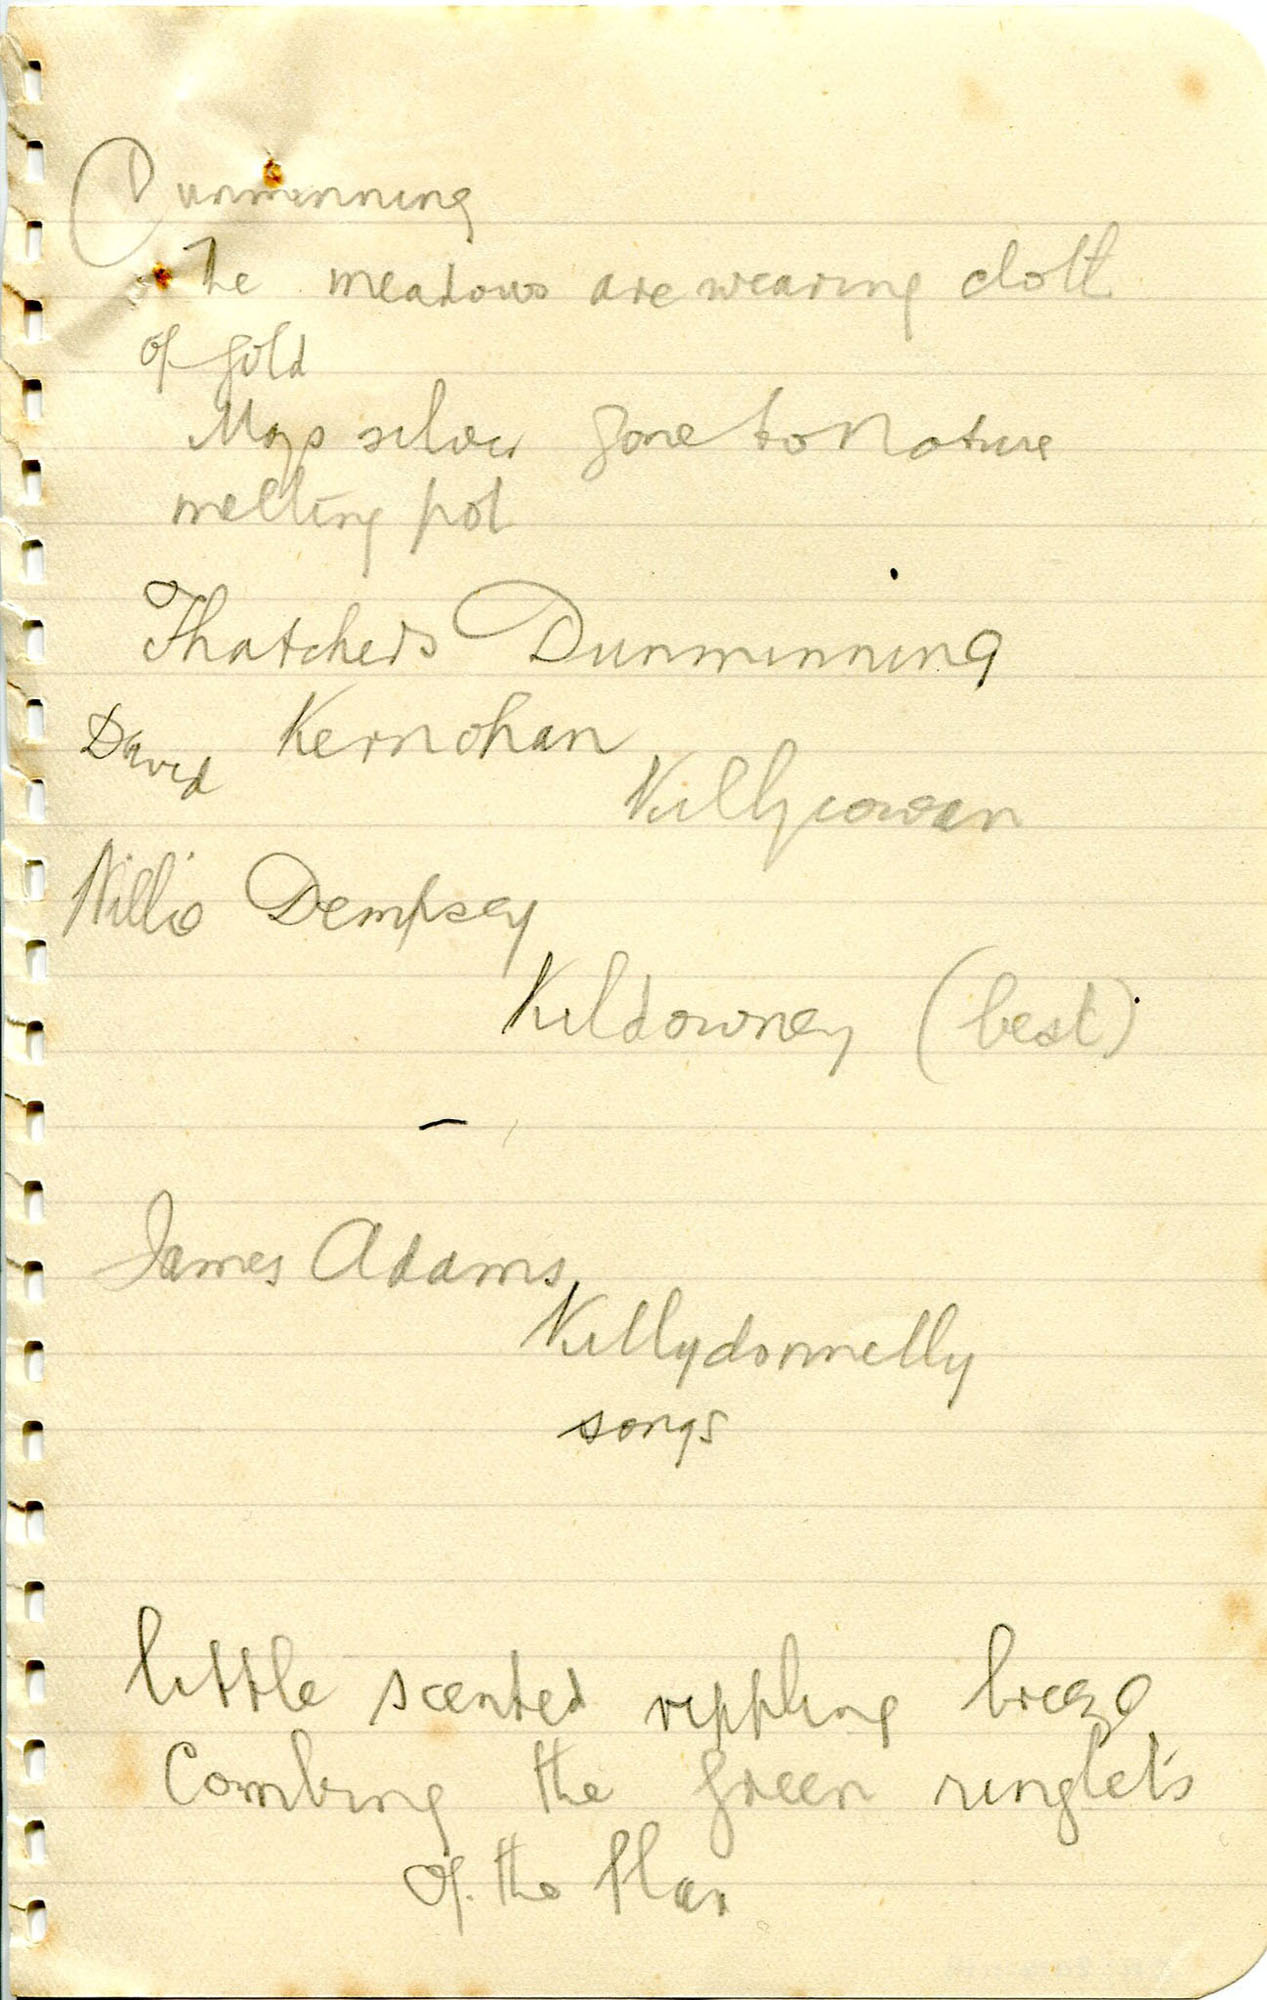 Dunminning
The meadows are wearing cloth
of gold
Mays silver gone to Nature
melting pot
Thatchers Dunminning
David Kernohan
Killycowan
Willie Dempsey
Kildowney (best)
James Adams
Killydonnelly
songs
little scented rippling breeze
Combing the green ringlets
of the flax